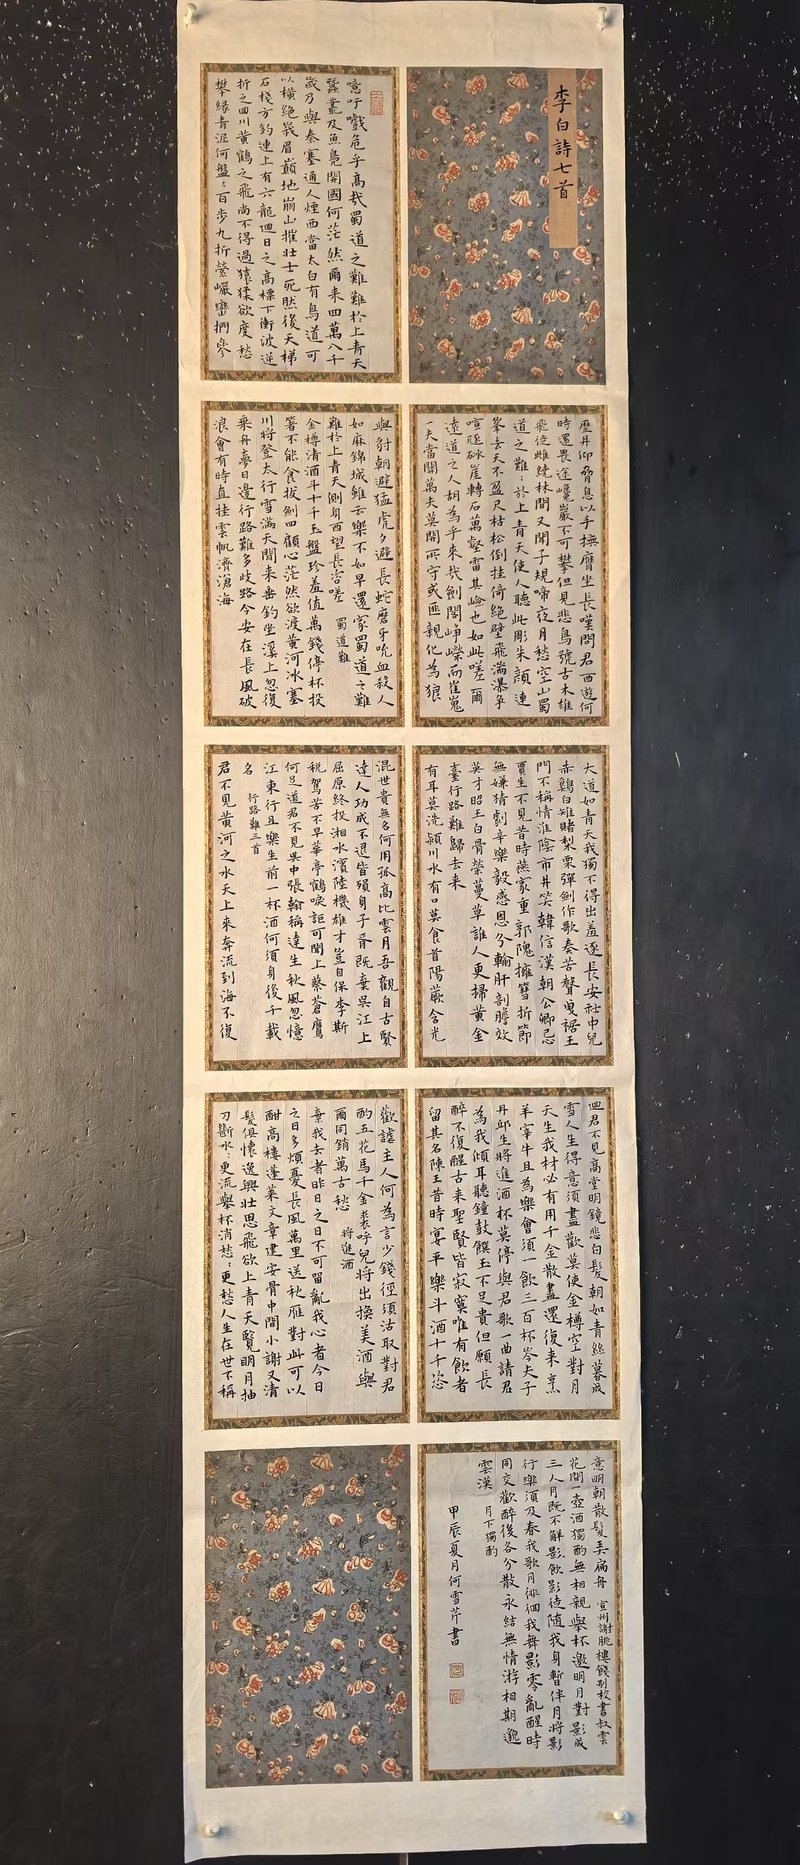 李白詩七首
噫吁嚱危乎高哉蜀道之難難於上青天
蠶叢及魚鳧開國何茫然爾来四萬八千
歲乃與秦塞通人煙西當太白有鳥道可
以橫絕峩眉巔地崩山摧壯士死然後天梯
石棧方鈎連上有六龍迴日之高標下衝波逆
折之回川黃鶴之飛尚不得過猿猱欲度愁
攀緣青泥何盤ミ百步九折縈巖巒捫參
歷井仰脅息以手撫膺坐長嘆問君西遊何
時還畏途巉巖不可攀但見悲鳥號古木雄
飛從雌繞林間又聞子規啼夜月愁空山蜀
道之難ミ於上青天使人聽此彫朱顏連
峯去天不盈尺枯松倒挂倚絕壁飛湍瀑爭
喧豗砯崖轉石萬壑雷其嶮也如此嗟爾
遠道之人胡為乎来哉劍閣崢嶸而崔嵬
一夫當關萬夫莫開所守或匪親化為狼
與豺朝避猛虎夕避長蛇磨牙吮血殺人
如麻錦城雖云樂不如早還家蜀道之難
難於上青天側身西望長咨嗟 蜀道難
金樽清酒斗十千玉盤珍羞值萬錢停杯投
箸不能食拔劍四顧心茫然欲渡黃河冰塞
川將登太行雪滿天閒来垂釣坐溪上忽復
乘舟夢日邊行路難多歧路今安在長風破
浪會有時直挂雲帆濟滄海
大道如青天我獨不得出羞逐長安社中兒
赤雞白雉賭梨栗彈劍作歌奏苦聲曳裾王
門不稱情淮陰市井笑韓信漢朝公卿忌
賈生不見昔時燕家重郭隗擁篲折節
無嫌猜劇辛樂毅感恩分輸肝剖膽效
英才昭王白骨縈蔓草誰人更掃黃金
臺行路難歸去来
有耳莫洗潁川水有口莫食首陽蕨含光
混世貴無名何用孤高比雲月吾觀自古賢
達人功成不退皆殞身子胥既棄吳江上
屈原終投湘水濱陸機雄才豈自保李斯
稅駕苦不早華亭鶴唳詎可聞上蔡蒼鷹
何足道君不見吳中張翰稱達生秋風忽憶
江東行且樂生前一杯酒何須身後千載
名 行路難三首
君不見黃河之水天上来奔流到海不復
迴君不見高堂明鏡悲白髮朝如青絲暮成
雪人生得意須盡歡莫使金樽空對月
天生我材必有用千金散盡還復来烹
羊宰牛且為樂會須一飲三百杯岑夫子
丹邱生將進酒杯莫停與君歌一曲請君
為我傾耳聽鐘鼓饌玉不足貴但願長
醉不復醒古来聖賢皆寂寞唯有飲者
留其名陳王昔時宴平樂斗酒十千恣
歡謔主人何為言少錢徑須沽取對君
酌五花馬千金裘呼兒將出換美酒與
爾同銷萬古愁 將進酒
棄我去者昨日之日不可留亂我心者今日
之日多煩憂長風萬里送秋雁對此可以
酣高樓蓬萊文章建安骨中間小謝又清
髮俱懷逸興壯思飛欲上青天覽明月抽
刀斷水ミ更流舉杯消愁ミ更愁人生在世不稱
意明朝散髮弄扁舟 宣州謝朓樓餞別校書叔雲
花間一壺酒獨酌無相親舉杯邀明月對影成
三人月既不解飲影徒隨我身暫伴月將影
行樂須及春我歌月徘徊我舞影零亂醒時
同交歡醉後各分散永結無情游相期邈
雲漢 月下獨酌
甲辰夏月何雪芹書